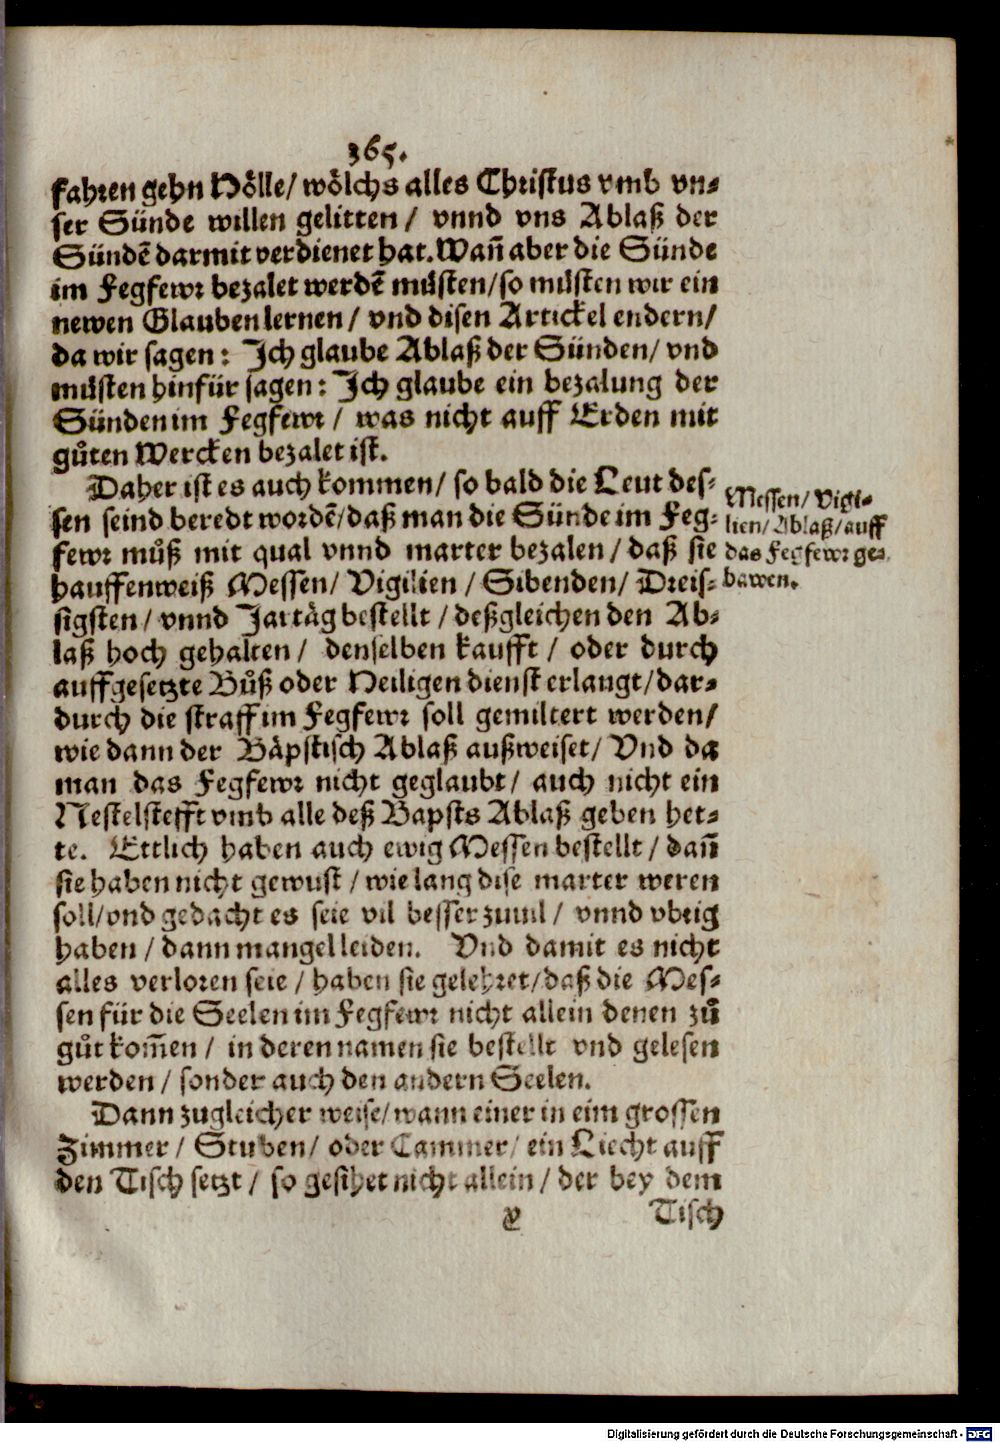 365.
fahren gehn Hölle/ wölchs alles Christus vmb vn-
ser Sünde willen gelitten / vnnd vns Ablaß der
Sündē darmit verdienet hat. Wañ aber die Sünde
im Fegfewr bezalet werdē müsten/ so müsten wir ein
newen Glauben lernen / vnd disen Artickel endern/
da wir sagen: Jch glaube Ablaß der Sünden/ vnd
müsten hinfür sagen: Jch glaube ein bezalung der
Sünden im Fegfewr / was nicht auff Erden mit
gůten Wercken bezalet ist.
Daher ist es auch kommen/ so bald die Leut des-
sen seind beredt wordē/ daß man die Sünde im Feg-
fewr můß mit qual vnnd marter bezalen / daß sie
hauffenweiß Messen/ Vigilien / Sibenden/ Dreis-
sigsten / vnnd Jartäg bestellt / deßgleichen den Ab-
laß hoch gehalten / denselben kaufft / oder durch
auffgesetzte Bůß oder Heiligen dienst erlangt/ dar-
durch die straff im Fegfewr soll gemiltert werden/
wie dann der Bäpstisch Ablaß außweiset/ Vnd da
man das Fegfewr nicht geglaubt / auch nicht ein
Nestelstefft vmb alle deß Bapsts Ablaß geben het-
te. Ettlich haben auch ewig Messen bestellt / dañ
sie haben nicht gewust / wie lang dise marter weren
soll/ vnd gedacht es seie vil besser zuuil / vnnd vbrig
haben / dann mangel leiden. Vnd damit es nicht
alles verloren seie / haben sie gelehret/ daß die Mes-
sen für die Seelen im Fegfewr nicht allein denen zů
gůt kom̃en / in deren namen sie bestellt vnd gelesen
werden / sonder auch den andern Seelen.
Dann zugleicher weise/ wann einer in eim grossen
Zimmer / Stuben/ oder Cammer/ ein Liecht auff
den Tisch setzt / so gesihet nicht allein / der bey dem
Tisch
Messen/ Vigi-
lien/ Ablaß/ auff
das Fegfewr ge-
bawen.
Digitalisierung gefördert durch die Deutsche Forschungsgemeinschaft - DFG